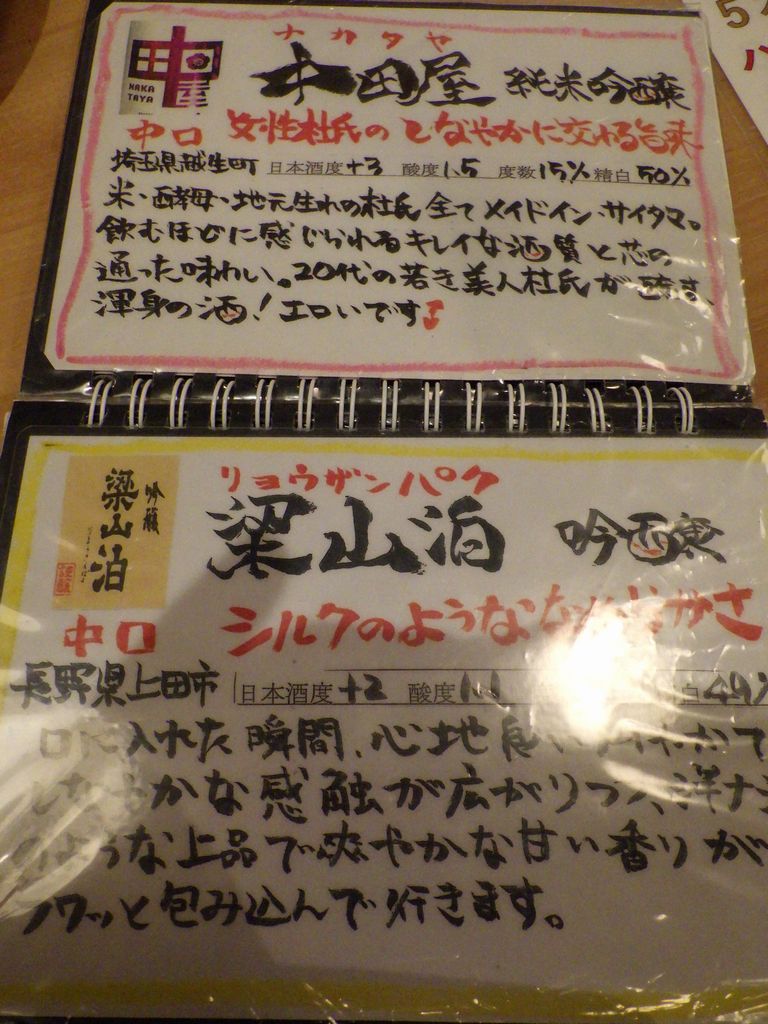 NAKA
TAYA
ナカタヤ
中田屋 純米吟醸
中口 女性杜氏の しなやかに交わる旨味
埼玉県越生町 日本酒度+3 酸度1.5 度数15% 精白50%
米・酵母・地元生れの杜氏 全て メイドイン・サイタマ。
飲むほどに感じられるキレイな酒質と芯の
通った味わい。20代の若き美人杜氏が醸す、
渾身の酒!エロいです
5
吟醸
梁山泊
リョウザンパク
梁山泊 吟醸
中口 シルクのようななめらかさ
長野県上田市 日本酒度+2 酸度1.1 白49%
口に入れた瞬間、心地良い
しなやかな感触が広がりつつ、洋ナシ
のような上品で爽やかな甘い香りが
フワッと包み込んで行きます。